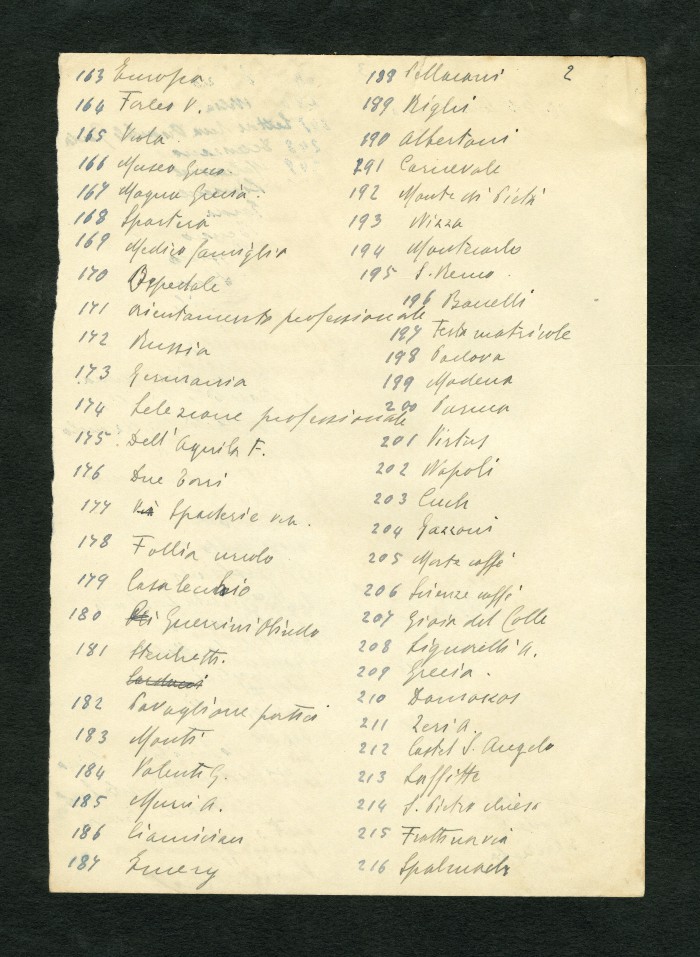 2
163 Europa
164 Forleo V.
165 Viola
166 Museo Greco
167 Magna Grecia.
168 Sparteria
169 Medico famiglia
170 Ospedale
171 orientamento professionale
172 Russia
173 Germania
174 Selezione professionale
175 Dell'Aquila F.
176 Due Torri
177 Spaderie via.
178 Follia
179 Casalecchio
180 Guerrini Olindo
181 Stecchetti.
Carducci
182 Pavaglione portici
183 Monti
184 Valenti G.
185 Murri A.
186 Ciamician
187 Emery
188 Pellacani
189 Righi
190 Albertoni
191 Carnevale
192 Monte di Pietà
193 Nizza
194 Montecarlo
195 S. Remo.
196 Bonelli
197 Festa matricole
198 Padova
199 Modena
200 Parma
201 Virtus
202 Napoli
203 Cuch
204 Gazzoni
205 caffè
206 Scienze caffè
207 Gioia del Colle
208 Signorelli A.
209 Grecia.
210 Damaskos
211 Zeri A.
212 Castel S. Angelo
213 Laffitte
214 S. Pietro chiesa
215 Frattina via
216